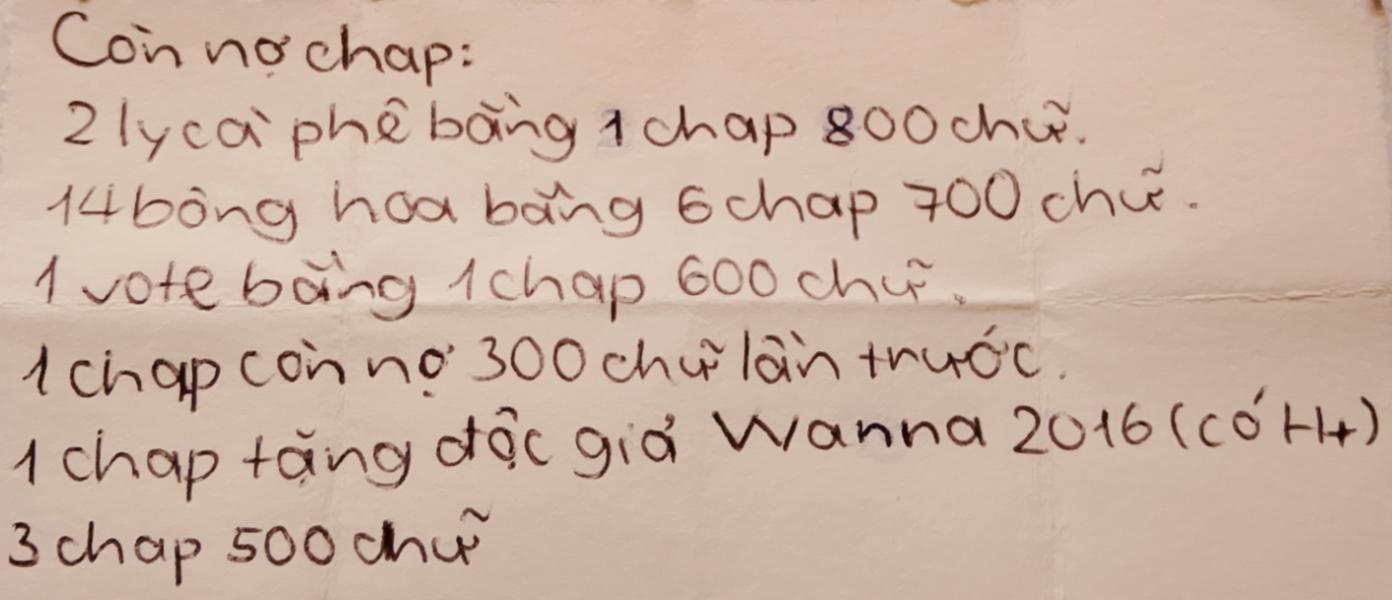 Còn nợ chap:
2 ly cà phê bằng 1 chap 800 chữ.
14 bông hoa bằng 6 chap 700 chữ.
1 vote bằng 1 chap 600 chữ.
1 chap còn nợ 300 chữ lần trước.
1 chap tặng độc giả Wanna 2016 (có H+)
3 chap 500 chữ